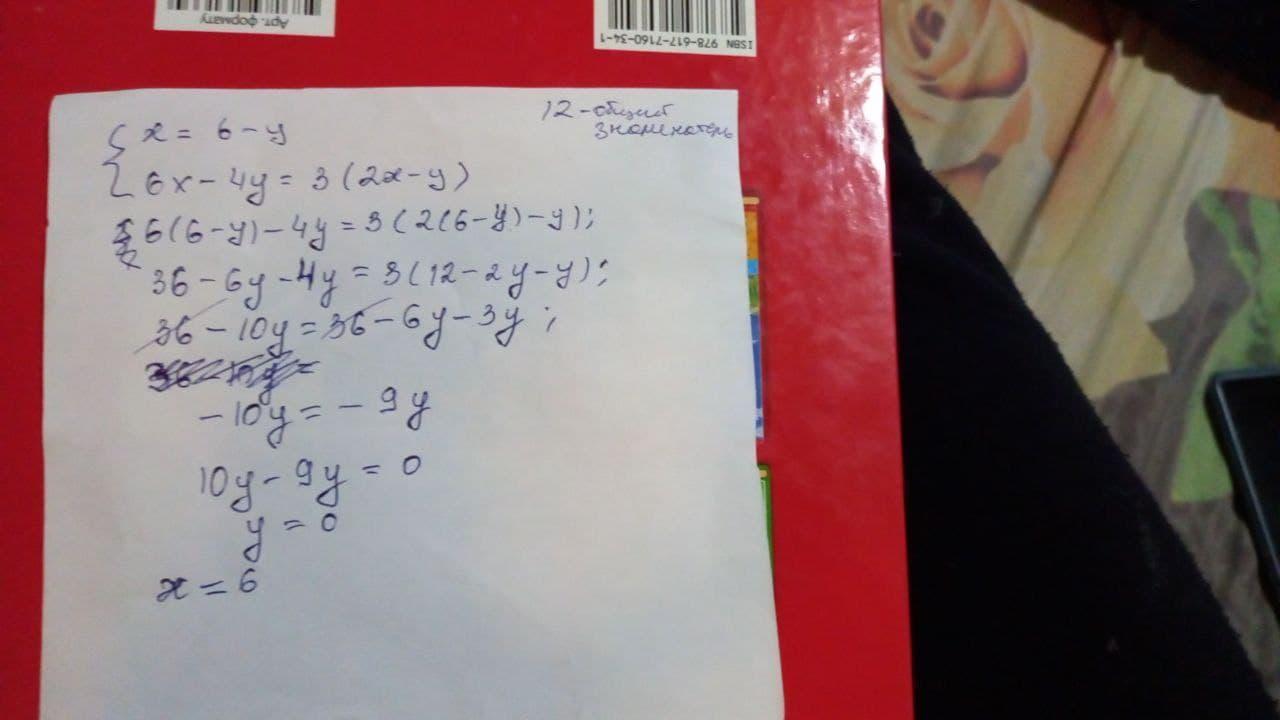 Арт. формату
ISBN 978-617-7160-34-1
12 - общий
знаменатель
{ x = 6 - y
6x - 4y = 3 (2x - y)
6(6-y) - 4y = 3(2(6-y)-y);
36 - 6y - 4y = 3(12 - 2y - y);
36 - 10y = 36 - 6y - 3y;
36 - 10y =
- 10y = - 9y
10y - 9y = 0
y = 0
x = 6